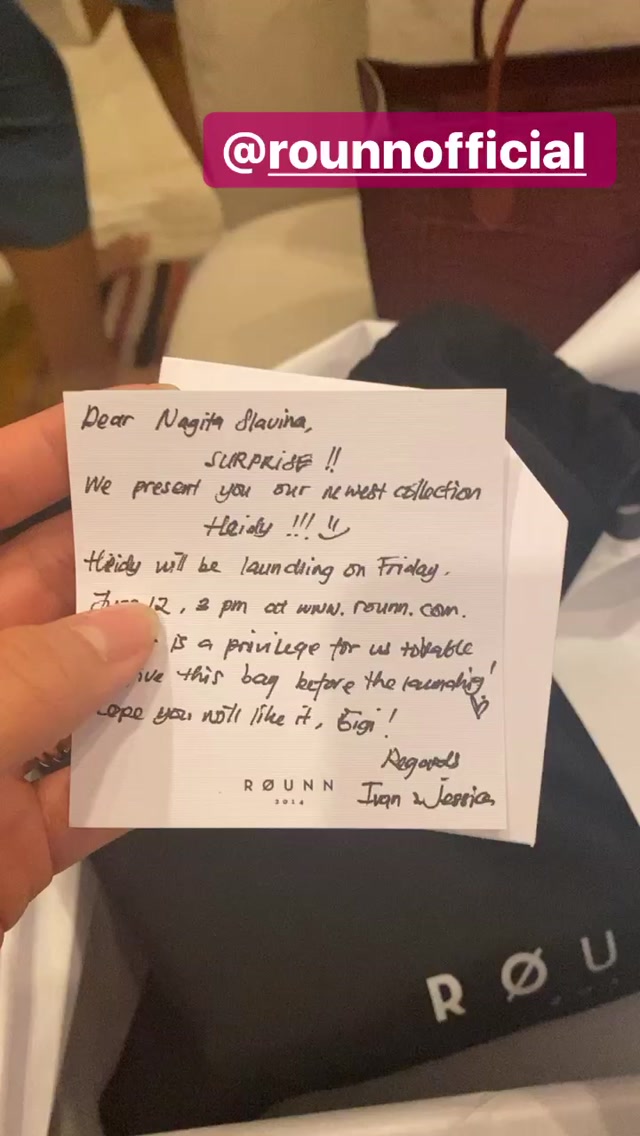 @rounnofficial
Dear Nagita Slavina,
SURPRISE !!
We present you our newest collection
Heidy !!!
Heidy will be launching on Friday,
12, 2 pm at www.rounn.com.
is a privilege for us to be able
this bag before the launching!
you will like it, Gigi!
Regards
Ivan & Jessica
RØUNN
2014
RØU